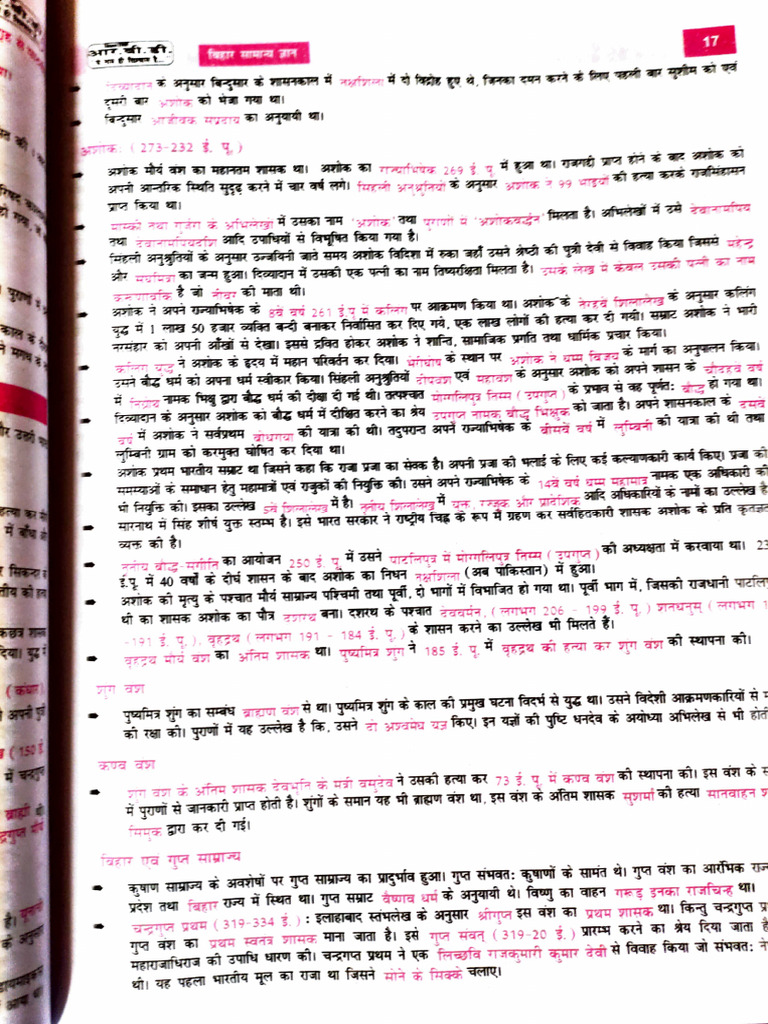 आर.वी.डी.
बिहार सामान्य ज्ञान
17
दिव्यादान के अनुसार बिन्दुसार के शासनकाल में तक्षशिला में दो विद्रोह हुए थे, जिनका दमन करने के लिए पहली बार सुशीम को एवं
दूसरी बार अशोक को भेजा गया था।
बिन्दुसार आजीवक संप्रदाय का अनुयायी था।
अशोक: (273-232 ई. पू.)
अशोक मौर्य वंश का महानतम शासक था। अशोक का राज्याभिषेक 269 ई. पू. में हुआ था। राजगद्दी प्राप्त होने के बाद अशोक को
अपनी आन्तरिक स्थिति सुदृढ़ करने में चार वर्ष लगे। सिंहली अनुश्रुतियों के अनुसार अशोक ने 99 भाइयों की हत्या करके राजसिंहासन
प्राप्त किया था।
मास्की तथा गुर्जरा के अभिलेखों में उसका नाम 'अशोक' तथा पुराणों में 'अशोकवर्द्धन' मिलता है। अभिलेखों में उसे देवानामपिय
तथा देवानामपियदशि आदि उपाधियों से विभूषित किया गया है।
सिंहली अनुश्रुतियों के अनुसार उज्जयिनी जाते समय अशोक विदिशा में रुका जहाँ उसने श्रेष्ठी की पुत्री देवी से विवाह किया जिससे महेन्द्र
और संघमित्रा का जन्म हुआ। दिव्यादान में उसकी एक पत्नी का नाम तिष्यरक्षिता मिलता है। उसके लेख में केवल उसकी पत्नी का नाम
करूणावकि है जो तीवर की माता थी।
अशोक ने अपने राज्याभिषेक के 8वें वर्ष 261 ई.पू. में कलिंग पर आक्रमण किया था। अशोक के तेरहवें शिलालेख के अनुसार कलिंग
युद्ध में 1 लाख 50 हजार व्यक्ति बन्दी बनाकर निर्वासित कर दिए गये, एक लाख लोगों की हत्या कर दी गयी। सम्राट अशोक ने भारी
नरसंहार को अपनी आँखों से देखा। इससे द्रवित होकर अशोक ने शान्ति, सामाजिक प्रगति तथा धार्मिक प्रचार किया।
कलिंग युद्ध ने अशोक के हृदय में महान परिवर्तन कर दिया। भेरीघोष के स्थान पर अशोक ने धम्म विजय के मार्ग का अनुपालन किया।
उसने बौद्ध धर्म को अपना धर्म स्वीकार किया। सिंहली अनुश्रुतियों दीपवंश एवं महावंश के अनुसार अशोक को अपने शासन के चौदहवें वर्ष
में निग्रोथ नामक भिक्षु द्वारा बौद्ध धर्म की दीक्षा दी गई थी। तत्पश्चात मोग्गलिपुत्र तिस्स (उपगुप्त) के प्रभाव से वह पूर्णत: बौद्ध हो गया था।
दिव्यादान के अनुसार अशोक को बौद्ध धर्म में दीक्षित करने का श्रेय उपगुप्त नामक बौद्ध भिक्षुक को जाता है। अपने शासनकाल के दसवें
वर्ष में अशोक ने सर्वप्रथम बोधगया की यात्रा की थी। तदुपरान्त अपने राज्याभिषेक के बीसवें वर्ष में लुम्बिनी की यात्रा की थी तथा
लुम्बिनी ग्राम को करमुक्त घोषित कर दिया था।
अशोक प्रथम भारतीय सम्राट था जिसने कहा कि राजा प्रजा का सेवक है। अपनी प्रजा की भलाई के लिए कई कल्याणकारी कार्य किए। प्रजा की
समस्याओं के समाधान हेतु महामात्रों एवं राजुकों की नियुक्ति की। उसने अपने राज्याभिषेक के 14वें वर्ष धम्म महामात्र नामक एक अधिकारी की
भी नियुक्ति की। इसका उल्लेख 5वें शिलालेख में है। तृतीय शिलालेख में युक्त, रज्जुक और प्रादेशिक आदि अधिकारियों के नामों का उल्लेख है
सारनाथ में सिंह शीर्ष युक्त स्तम्भ है। इसे भारत सरकार ने राष्ट्रीय चिह्न के रूप में ग्रहण कर सर्वहितकारी शासक अशोक के प्रति
व्यक्त की है।
तृतीय बौद्ध-संगीति का आयोजन 250 ई. पू. में उसने पाटलिपुत्र में मोग्गलिपुत्र तिस्स (उपगुप्त) की अध्यक्षता में करवाया था।
ई.पू. में 40 वर्षों के दीर्घ शासन के बाद अशोक का निधन तक्षशिला (अब पाकिस्तान) में हुआ।
अशोक की मृत्यु के पश्चात मौर्य साम्राज्य पश्चिमी तथा पूर्वी, दो भागों में विभाजित हो गया था। पूर्वी भाग में, जिसकी राजधानी
थी का शासक अशोक का पौत्र दशरथ बना। दशरथ के पश्चात देववर्मन, (लगभग 206 - 199 ई. पू.) शतधनुस् (लगभग
-191 ई. पू.), बृहद्रथ (लगभग 191 - 184 ई. पू.) के शासन करने का उल्लेख भी मिलते हैं।
बृहद्रथ मौर्य वंश का अंतिम शासक था। पुष्यमित्र शुंग ने 185 ई. पू. में बृहद्रथ की हत्या कर शुंग वंश की स्थापना की।
शुंग वंश
पुष्यमित्र शुंग का सम्बंध ब्राह्मण वंश से था। पुष्यमित्र शुंग के काल की प्रमुख घटना विदर्भ से युद्ध था। उसने विदेशी आक्रमणकारियों से
की रक्षा की। पुराणों में यह उल्लेख है कि, उसने दो अश्वमेध यज्ञ किए। इन यज्ञों की पुष्टि धनदेव के अयोध्या अभिलेख से भी होती
कण्व वंश
शुंग वंश के अंतिम शासक देवभूति के मंत्री वसुदेव ने उसकी हत्या कर 73 ई. पू. में कण्व वंश की स्थापना की। इस वंश के
में पुराणों से जानकारी प्राप्त होती है। शुंगों के समान यह भी ब्राह्मण वंश था, इस वंश के अंतिम शासक सुशर्मा की हत्या सातवाहन
सिमुक द्वारा कर दी गई।
बिहार एवं गुप्त साम्राज्य
कुषाण साम्राज्य के अवशेषों पर गुप्त साम्राज्य का प्रादुर्भाव हुआ। गुप्त संभवत: कुषाणों के सामंत थे। गुप्त वंश का आरंभिक
प्रदेश तथा बिहार राज्य में स्थित था। गुप्त सम्राट वैष्णव धर्म के अनुयायी थे। विष्णु का वाहन गरूड़ इनका राजचिन्ह था।
चन्द्रगुप्त प्रथम (319-334 ई.) : इलाहाबाद स्तंभलेख के अनुसार श्रीगुप्त इस वंश का प्रथम शासक था। किन्तु चन्द्रगुप्त
गुप्त वंश का प्रथम स्वतंत्र शासक माना जाता है। इसे गुप्त संवत् (319-20 ई.) प्रारम्भ करने का श्रेय दिया जाता
महाराजाधिराज की उपाधि धारण की। चन्द्रगुप्त प्रथम ने एक लिच्छवि राजकुमारी कुमार देवी से विवाह किया जो संभवत:
थी। यह पहला भारतीय मूल का राजा था जिसने सोने के सिक्के चलाए।